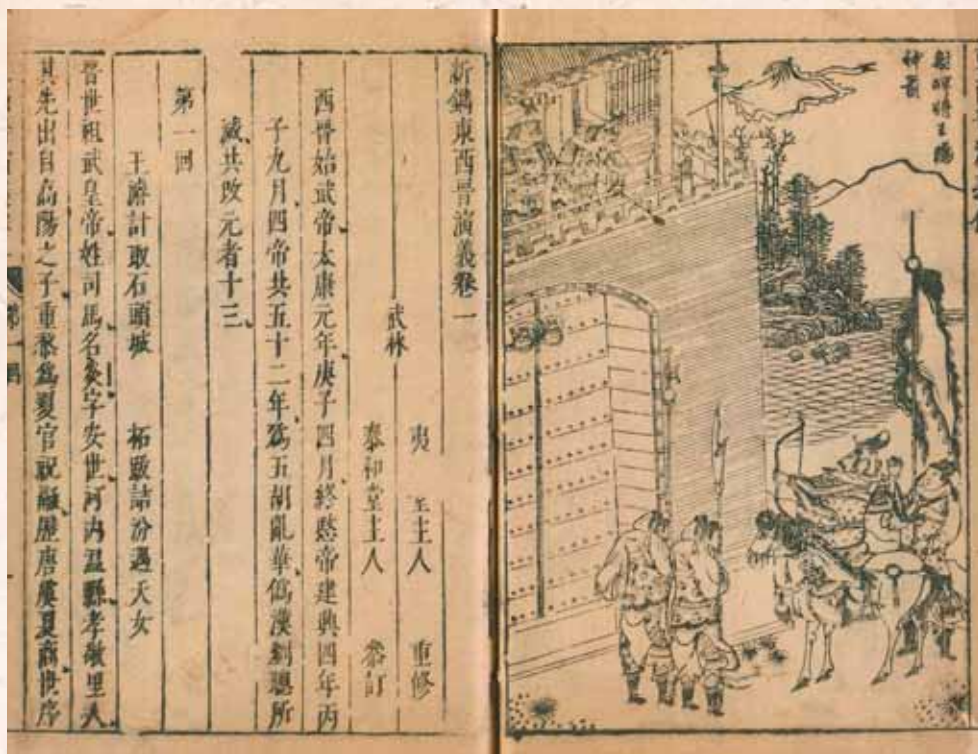 神箭
新鐫東西晉演義卷一
武林
夷 主人 重修
泰和堂主人 叅訂
西晉始武帝太康元年庚子四月終愍帝建興四年丙
子九月四帝共五十二年爲五胡亂華僞漢劉聰所
滅共改元者十三
第一回
王濬計取石頭城 拓跋詰汾遇天女
晉世祖武皇帝姓司馬名炎字安世河內温縣孝敬里人
其先出自高陽之子重黎爲夏官祝融歷唐虞夏商世序